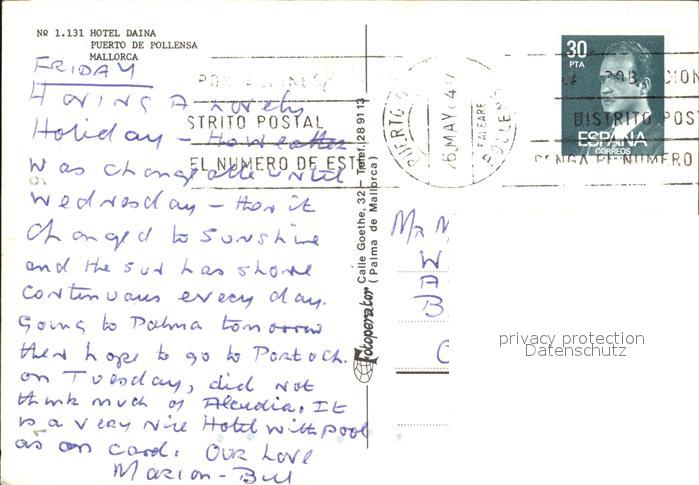 Nº 1.131 HOTEL DAINA
PUERTO DE POLLENSA
MALLORCA
FRIDAY
HAVING A Lovely
Holiday - The Weather
was changeable until
Wednesday - then it
changed to sunshine
and the sun has shone
continuous every day.
Going to Palma tomorrow
then hope to go to Portoch.
on Tuesday, did not
think much of Alcudia. It
is a very nice Hotel with pool
as on card. Our Love
Marion - Bill
STRITO POSTAL
EL NUMERO DE ESTE
Fotoperator Calle Goethe, 32 - Telef. 289113
(Palma de Mallorca)
PUERTO
6 MAY
BALEARE
POLLENS
30
PTA
ESPAÑA
CORREOS
POBLACION
DISTRITO POST
PONGA EL NUMERO
MR M
W
A
B
C
privacy protection
Datenschutz